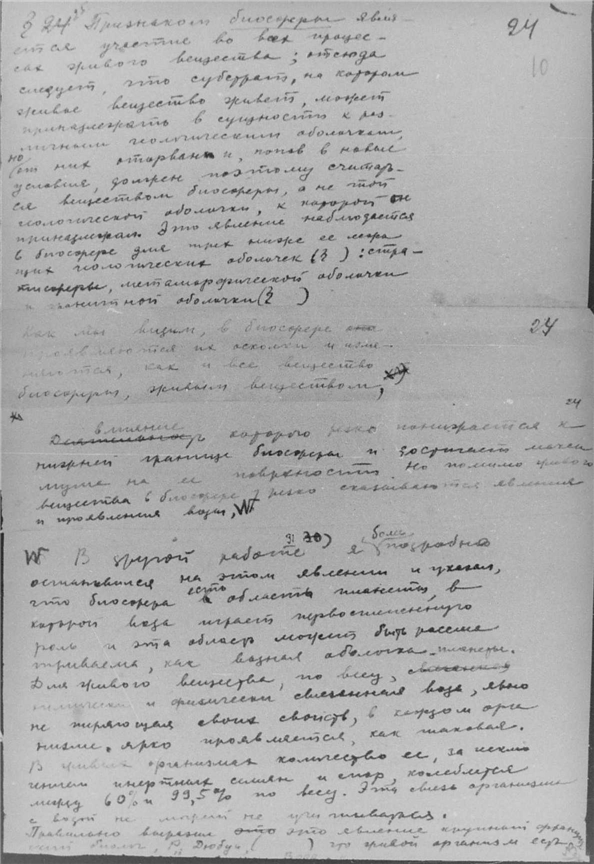 § 24 Признаком биосферы явля-
ется участие во всех процес-
сах живого вещества; отсюда
следует, что субстрат, на котором
живое вещество живет, может
принадлежать в сущности к раз-
личным геологическим оболочкам,
но от них оторван и, попав в новые
условия, должен поэтому считать-
ся веществом биосферы, а не той
геологической оболочки, к которой он
принадлежал. Это явление наблюдается
в биосфере для трех ниже ее лежа
щих геологических оболочек (§ ): стра-
тисферы, метаморфической оболочки
и гранитной оболочки (§ )
24
10
Как мы видим, в биосфере
проявляются их осколки и изме-
няются, как и все вещество
биосферы, живым веществом,
24
24
влияние
которого резко понижается к
нижней границе биосферы и достигает
на ее поверхности. Но помимо живого
вещества в биосфере резко сказываются явления
и проявления воды, W
W В другой работе 31) я более подробно
остановился на этом явлении и указал,
что биосфера есть область планеты, в
которой вода играет первостепенную
роль и эта область может быть рассма
триваема, как водная оболочка планеты.
Для живого вещества, по весу,
химически и физически связанная вода, явно
не теряющая своих свойств, в каждом орга
низме ярко проявляется, как таковая.
В живых организмах количество ее, за исклю
чением инертных семян и спор, колеблется
между 60% и 99,5% по весу. Эта связь организмов
с водой не может не учитываться.
Правильно выразил это явление крупный француз
ский биолог, Р. Дюбуа, ( ) что живой организм есть